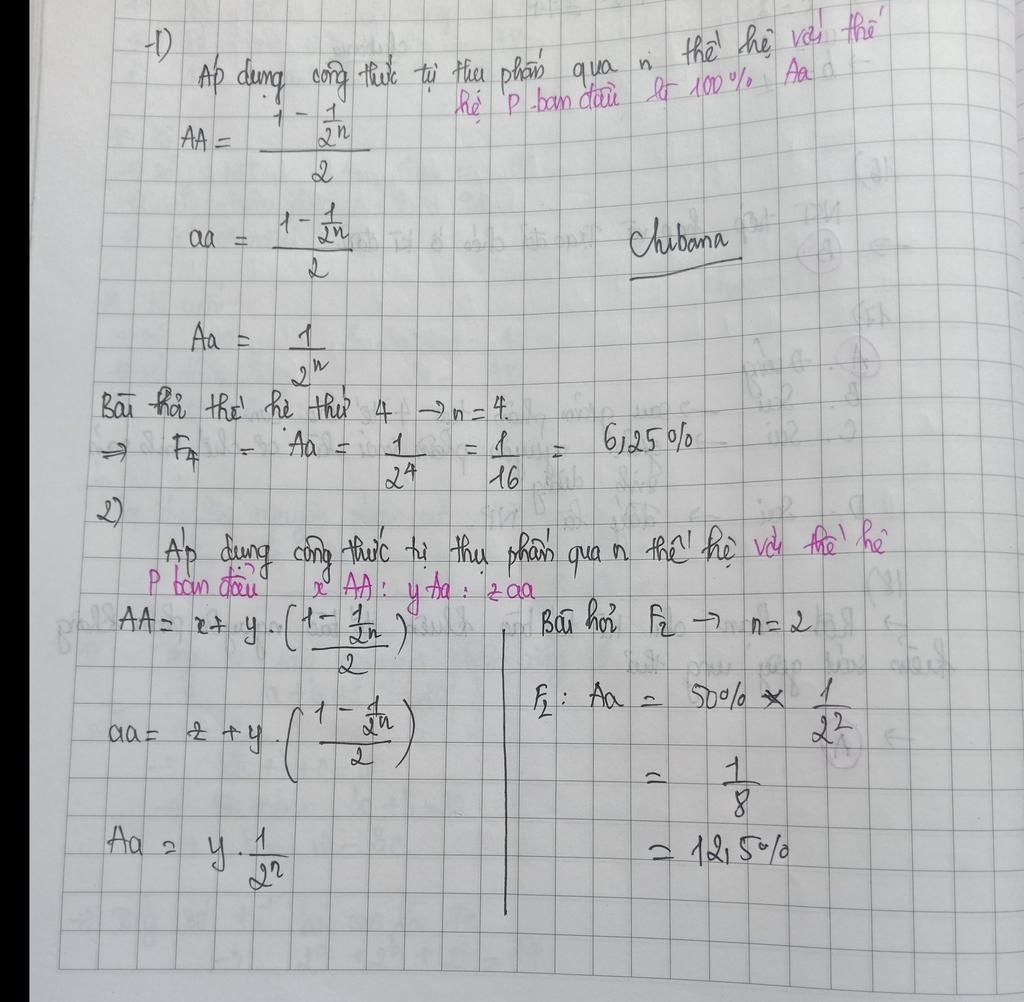 1)
Áp dụng công thức tự thụ phấn qua n thế hệ với thế
hệ P ban đầu là 100% Aa
AA = (1 - 1/2^n)/2
aa = (1 - 1/2^n)/2
Chibana
Aa = 1/2^n
Bài hỏi thế hệ thứ 4 → n = 4.
⇒ F₄ - Aa = 1/2^4 = 1/16 = 6,25%
2)
Áp dụng công thức tự thụ phấn qua n thế hệ với thế hệ
P ban đầu x AA : y Aa : z aa
AA = x + y . ((1 - 1/2^n)/2)
aa = z + y . ((1 - 1/2^n)/2)
Aa = y . 1/2^n
Bài hỏi F₂ → n = 2
F₂ : Aa = 50% × 1/2^2
= 1/8
= 12,5%